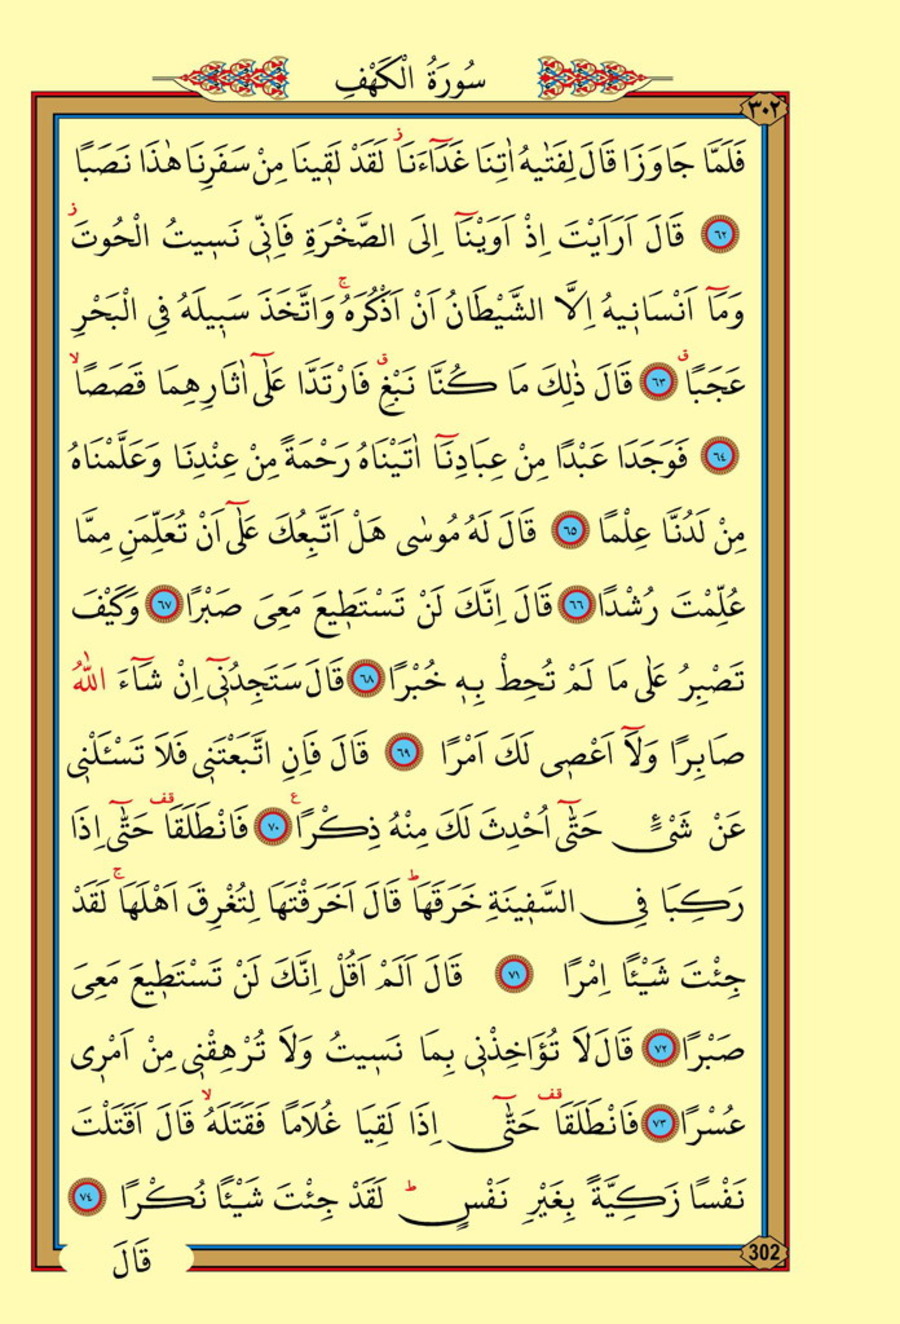 سُورَةُ الْكَهْفِ
٣٠٢
فَلَمَّا جَاوَزَا قَالَ لِفَتٰيهُ اٰتِنَا غَدَٓاءَنَاۘ لَقَدْ لَقٖينَا مِنْ سَفَرِنَا هٰذَا نَصَبًا
٦٢ قَالَ اَرَاَيْتَ اِذْ اَوَيْنَٓا اِلَى الصَّخْرَةِ فَاِنّٖي نَسٖيتُ الْحُوتَؗ
وَمَٓا اَنْسَانٖيهُ اِلَّا الشَّيْطَانُ اَنْ اَذْكُرَهُۚ وَاتَّخَذَ سَبٖيلَهُ فِي الْبَحْرِ
عَجَبًا ق ٦٣ قَالَ ذٰلِكَ مَا كُنَّا نَبْغِ ق فَارْتَدَّا عَلٰٓى اٰثَارِهِمَا قَصَصًاۙ
٦٤ فَوَجَدَا عَبْدًا مِنْ عِبَادِنَٓا اٰتَيْنَاهُ رَحْمَةً مِنْ عِنْدِنَا وَعَلَّمْنَاهُ
مِنْ لَدُنَّا عِلْمًا ٦٥ قَالَ لَهُ مُوسٰى هَلْ اَتَّبِعُكَ عَلٰٓى اَنْ تُعَلِّمَنِ مِمَّا
عُلِّمْتَ رُشْدًا ٦٦ قَالَ اِنَّكَ لَنْ تَسْتَطٖيعَ مَعِيَ صَبْرًا ٦٧ وَكَيْفَ
تَصْبِرُ عَلٰى مَا لَمْ تُحِطْ بِهٖ خُبْرًا ٦٨ قَالَ سَتَجِدُنٖٓي اِنْ شَٓاءَ اللّٰهُ
صَابِرًا وَلَٓا اَعْصٖي لَكَ اَمْرًا ٦٩ قَالَ فَاِنِ اتَّبَعْتَنٖي فَلَا تَسْـَٔلْنٖي
عَنْ شَيْءٍ حَتّٰٓى اُحْدِثَ لَكَ مِنْهُ ذِكْرًا ع ٧٠ فَانْطَلَقَا قف حَتّٰٓى اِذَا
رَكِبَا فِي السَّفٖينَةِ خَرَقَهَاؕ قَالَ اَخَرَقْتَهَا لِتُغْرِقَ اَهْلَهَاۚ لَقَدْ
جِئْتَ شَيْـًٔا اِمْرًا ٧١ قَالَ اَلَمْ اَقُلْ اِنَّكَ لَنْ تَسْتَطٖيعَ مَعِيَ
صَبْرًا ٧٢ قَالَ لَا تُؤَاخِذْنٖي بِمَا نَسٖيتُ وَلَا تُرْهِقْنٖي مِنْ اَمْرٖي
عُسْرًا ٧٣ فَانْطَلَقَا قف حَتّٰٓى اِذَا لَقِيَا غُلَامًا فَقَتَلَهُۙ قَالَ اَقَتَلْتَ
نَفْسًا زَكِيَّةً بِغَيْرِ نَفْسٍؕ لَقَدْ جِئْتَ شَيْـًٔا نُكْرًا ٧٤
302
قَالَ